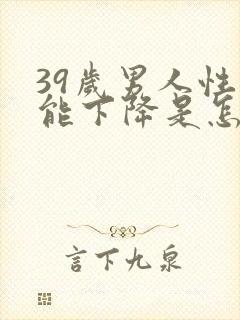 39歲男人性
能下降是怎
言下九泉